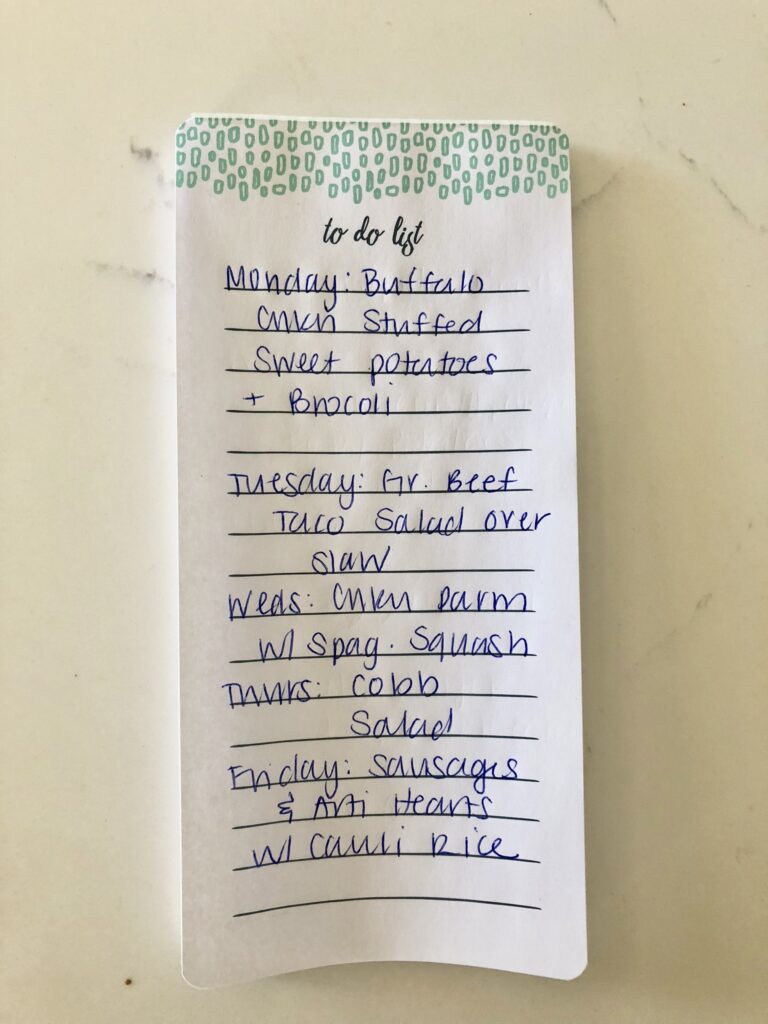 to do list
Monday: Buffalo
Chkn Stuffed
Sweet potatoes
+ Brocoli
Tuesday: Gr. Beef
Taco Salad over
slaw
Weds: Chkn parm
w/ Spag. Squash
Thurs: Cobb
Salad
Friday: Sausages
& Arti Hearts
w/ Cauli Rice